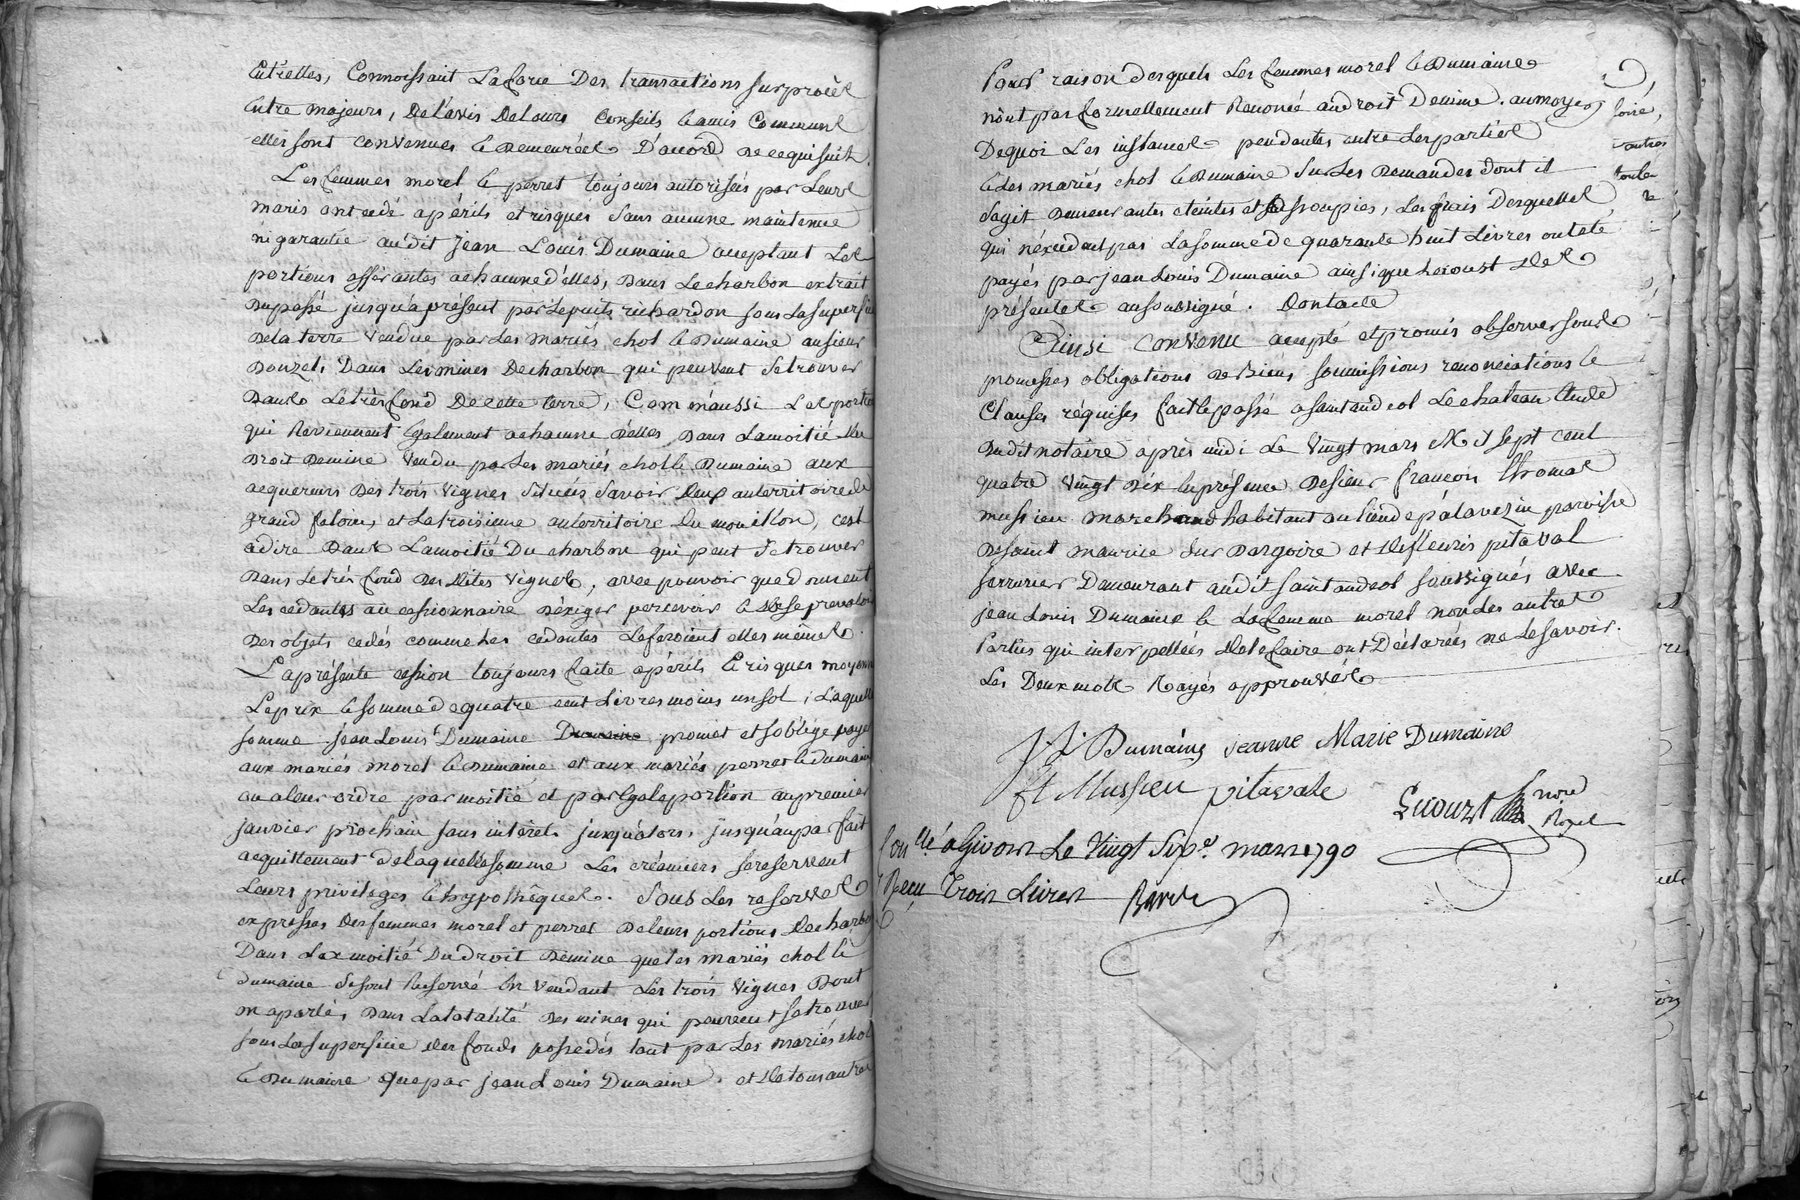 Entr'elles, Connoissant La force Des transactions sur procès
Entre majeurs, De l'avis De Leurs Conseils & amis Communs
elles sont convenues & Demeurées D'accord De ce qui suit.
Les femmes morel & perret toujours autorisées par Leurs
maris ont cédé a périls et risques sans aucune maintenue
ni garantie audit Jean Louis Dumaine acceptant Les
portions afférantes a chacune d'elles, Dans Le charbon extrait
Du passé jusqu'a présent par Le puits richardon sous La superficie
De la terre vendue par Les mariés chol & Dumaine au sieur
Donzel, Dans Les mines De charbon qui peuvent se trouver
Dans Le trèsfond De cette terre, Comm'aussi Les portions
qui Reviennent Egalement a chacune d'elles Dans La moitié du
Droit De mine vendu par Les mariés chol & Dumaine aux
acquereurs Des trois vignes situées savoir Deux au territoire de
grand feloin, et La troisieme au territoire Du mouillon, c'est
adire Dans La moitié Du charbon qui peut se trouver
Dans Le très fond Desdites vignes, avec pouvoir que Donnent
Les cédantes au cessionnaire D'exiger percevoir & se prevaloir
Des objets cedés comme Les cédantes Le feroient elles mêmes.
La présente cession toujours faite a périls & risques moyennant
Le prix & somme de quatre cent Livres moins un sol, Laquelle
somme Jean Louis Dumaine Dumaine promet et s'oblige payer
aux mariés morel & Dumaine et aux mariés perret & Dumaine
ou a leur ordre par moitié et par Egale portion au premier
janvier prochain sans intérêt jusqu'alors, jusqu'au parfait
acquittement De laquelle somme Les créanciers se reservent
Leurs privileges & hypothêques. Sous Les reserves
expresses Des femmes morel et perret De leurs portions De charbon
Dans La moitié Du droit De mine que Les mariés chol &
Dumaine se sont Reservé En vendant Les trois vignes Dont
on a parlé, Dans La totalité Des mines qui peuvent se trouver
sous La superficie des fonds possedés tant par Les mariés chol
& Dumaine que par Jean Louis Dumaine, et De tous autres
fonds raison Desquels Les femmes morel & Dumaine
n'ont pas formellement Renoncé au droit De mine. au moyen
De quoi Les instances pendantes entre Les parties
& Les mariés chol & Dumaine sur Les Demandes dont il
s'agit Demeurantes eteintes et assoupies, Les frais Desquelles
qui n'excedent pas La somme de quarante huit Livres ont eté
payés par Jean Louis Dumaine ainsi que Le coust des
présentes au soussigné. Dont acte
Ainsi convenu accepté et promis observer sous
promesses obligations De Biens soumissions renonciations &
Clauses réquises fait & passé a saint andeol Le chateau Etude
Dudit notaire après midi Le vingt mars Mil sept cent
quatre vingt Dix En présence De sieur françois thomas
mussieu marchand habitant au Lieu de pálavezin paroisse
De saint maurice sur Dargoire et De fleuris pitaval
serrurier Demeurant audit saint andeol soussignés avec
Jean Louis Dumaine & La femme morel non Les autres
Parties qui interpellées De Le faire ont Déclarées ne Le savoir.
Les Deux mots Rayés approuvés
J. L. Dumaine jeanne Marie Dumaine
ft Mussieu pitavale
Lucourt nore
Royal
Con.llé a Givors Le Vingt Sixe. mars 1790
Reçu Trois Livres